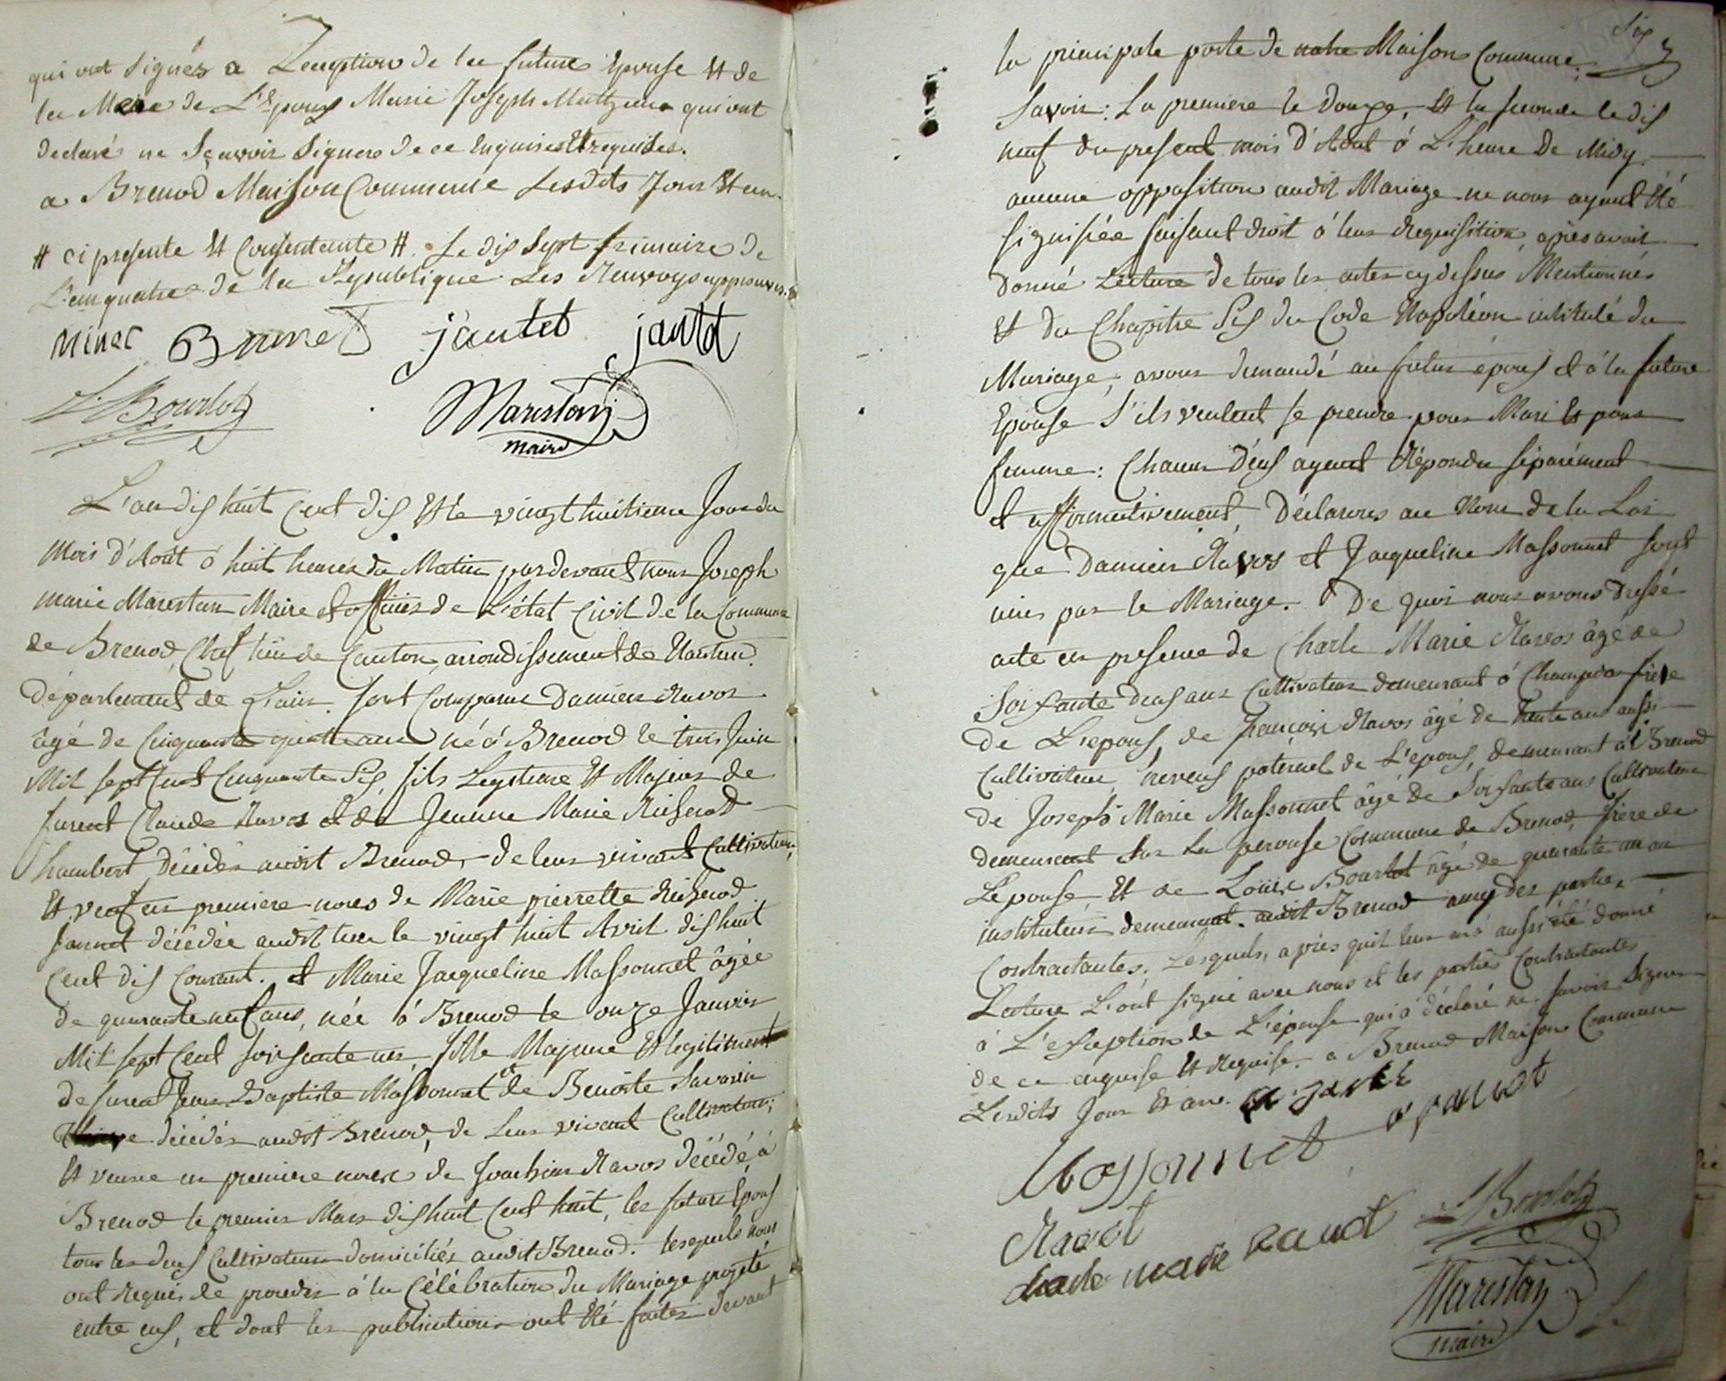 qui ont signés a L'exception de la future Epouse Et de
la Mere de L'Epoux Marie Joseph qui ont
declaré ne Sçavoir Signer de ce Enquises Et requises.
a Brenod Maison Commune Lesdits Jour Et an.
# ci presente Et Consentente #. Le dis Sept frimaire de
L'an quatre de la Republique Les Renvoys approuvés.
Ninet Brunet jantet jantet
L. Bourlot Marestan
maire
L'an dis huit Cent dis Et le vingt huitieme Jour du
Mois d'Aout à huit heures du Matin pardevant nous Joseph
marie Marestan Maire et officier de L'état Civil de la Commune
de Brenod, Chef lieu de Canton, arrondissement de Nantua
Département de L'ain. Sont Comparus Damien Ravos
âgé de Cinquante quatre ans né à Brenod le trois Juin
Mil sept Cent Cinquante Six, fils Legitime Et Majeur de
furent Claude Ravos et de Jeanne Marie Richerod
humbert décédés audit Brenod, de leur vivant Cultivateurs,
Et veuf en premiere noces de Marie pierrette Richerod
Jannot décédée audit lieu le vingt huit Avril dis huit
Cent dis Courant. et Marie Jacqueline Massonnet âgée
de quarante neuf ans, née à Brenod le onze Janvier
Mil sept Cent Soissante un fille Majeure Et legitime
de furent Jean Baptiste Massonnet et de Benoite Savarin
décédés audit Brenod, de Leur vivant Cultivateurs,
Et veuve en premiere noces de Joachim Ravos décédé à
Brenod le premier Mars dis huit Cent huit, les futurs Epous
tous les deus Cultivateurs domiciliés audit Brenod. lesquels nous
ont Requis de proceder à la Célébration du Mariage projeté
entre eus, et dont les publications ont Eté faites devant
Six
la principale porte de notre Maison Commune:
Savoir: La premiere le douze, Et la seconde le dis
neuf du present mois d'Aout à L'heure De Midy
aucune opposition audit Mariage ne nous ayant Eté
signifiée faisant droit à leur Requisition, après avoir
Donné Lecture de tous les actes cy dessus Mentionnés
Et du Chapitre Sis du Code Napoléon intitulé du
Mariage, avons demandé au futur épous et à la future
Epouse S'ils veulent se prendre pour Mari Et pour
femme: Chacun d'eus ayant Répondu séparément
et affirmativement, Déclarons au Nom de la Loi
que Damien Ravos et Jacqueline Massonnet sont
unis par le Mariage. De quoi nous avons Dressé
acte en presence de Charle Marie Ravos âgé de
Soissante deus ans Cultivateur demeurant à Champdor frère
de L'epous, de françois Ravos âgé de trente ans aussi
Cultivateur, neveus paternel de L'epous, demeurant à Brenod
de Joseph Marie Massonnet âgé de Soissante ans Cultivateur
demeurant Sur La perouse Commune de Brenod, frère de
Lepouse Et de Louis Bourlot âgé de quarante un an
instituteur demeurant audit Brenod amy des parties
Contractantes. Lesquels, après quil leur en à aussi été donné
Lecture L'ont signé avec nous et les parties Contractantes
à L'exception de L'épouse qui à déclaré ne savoir Signer
de ce enquise Et Requise. a Brenod Maison Commune
Lesdits Jour Et an.
Massonnet
Ravot
charle marie ravot L Bourlot
Marestan
maire